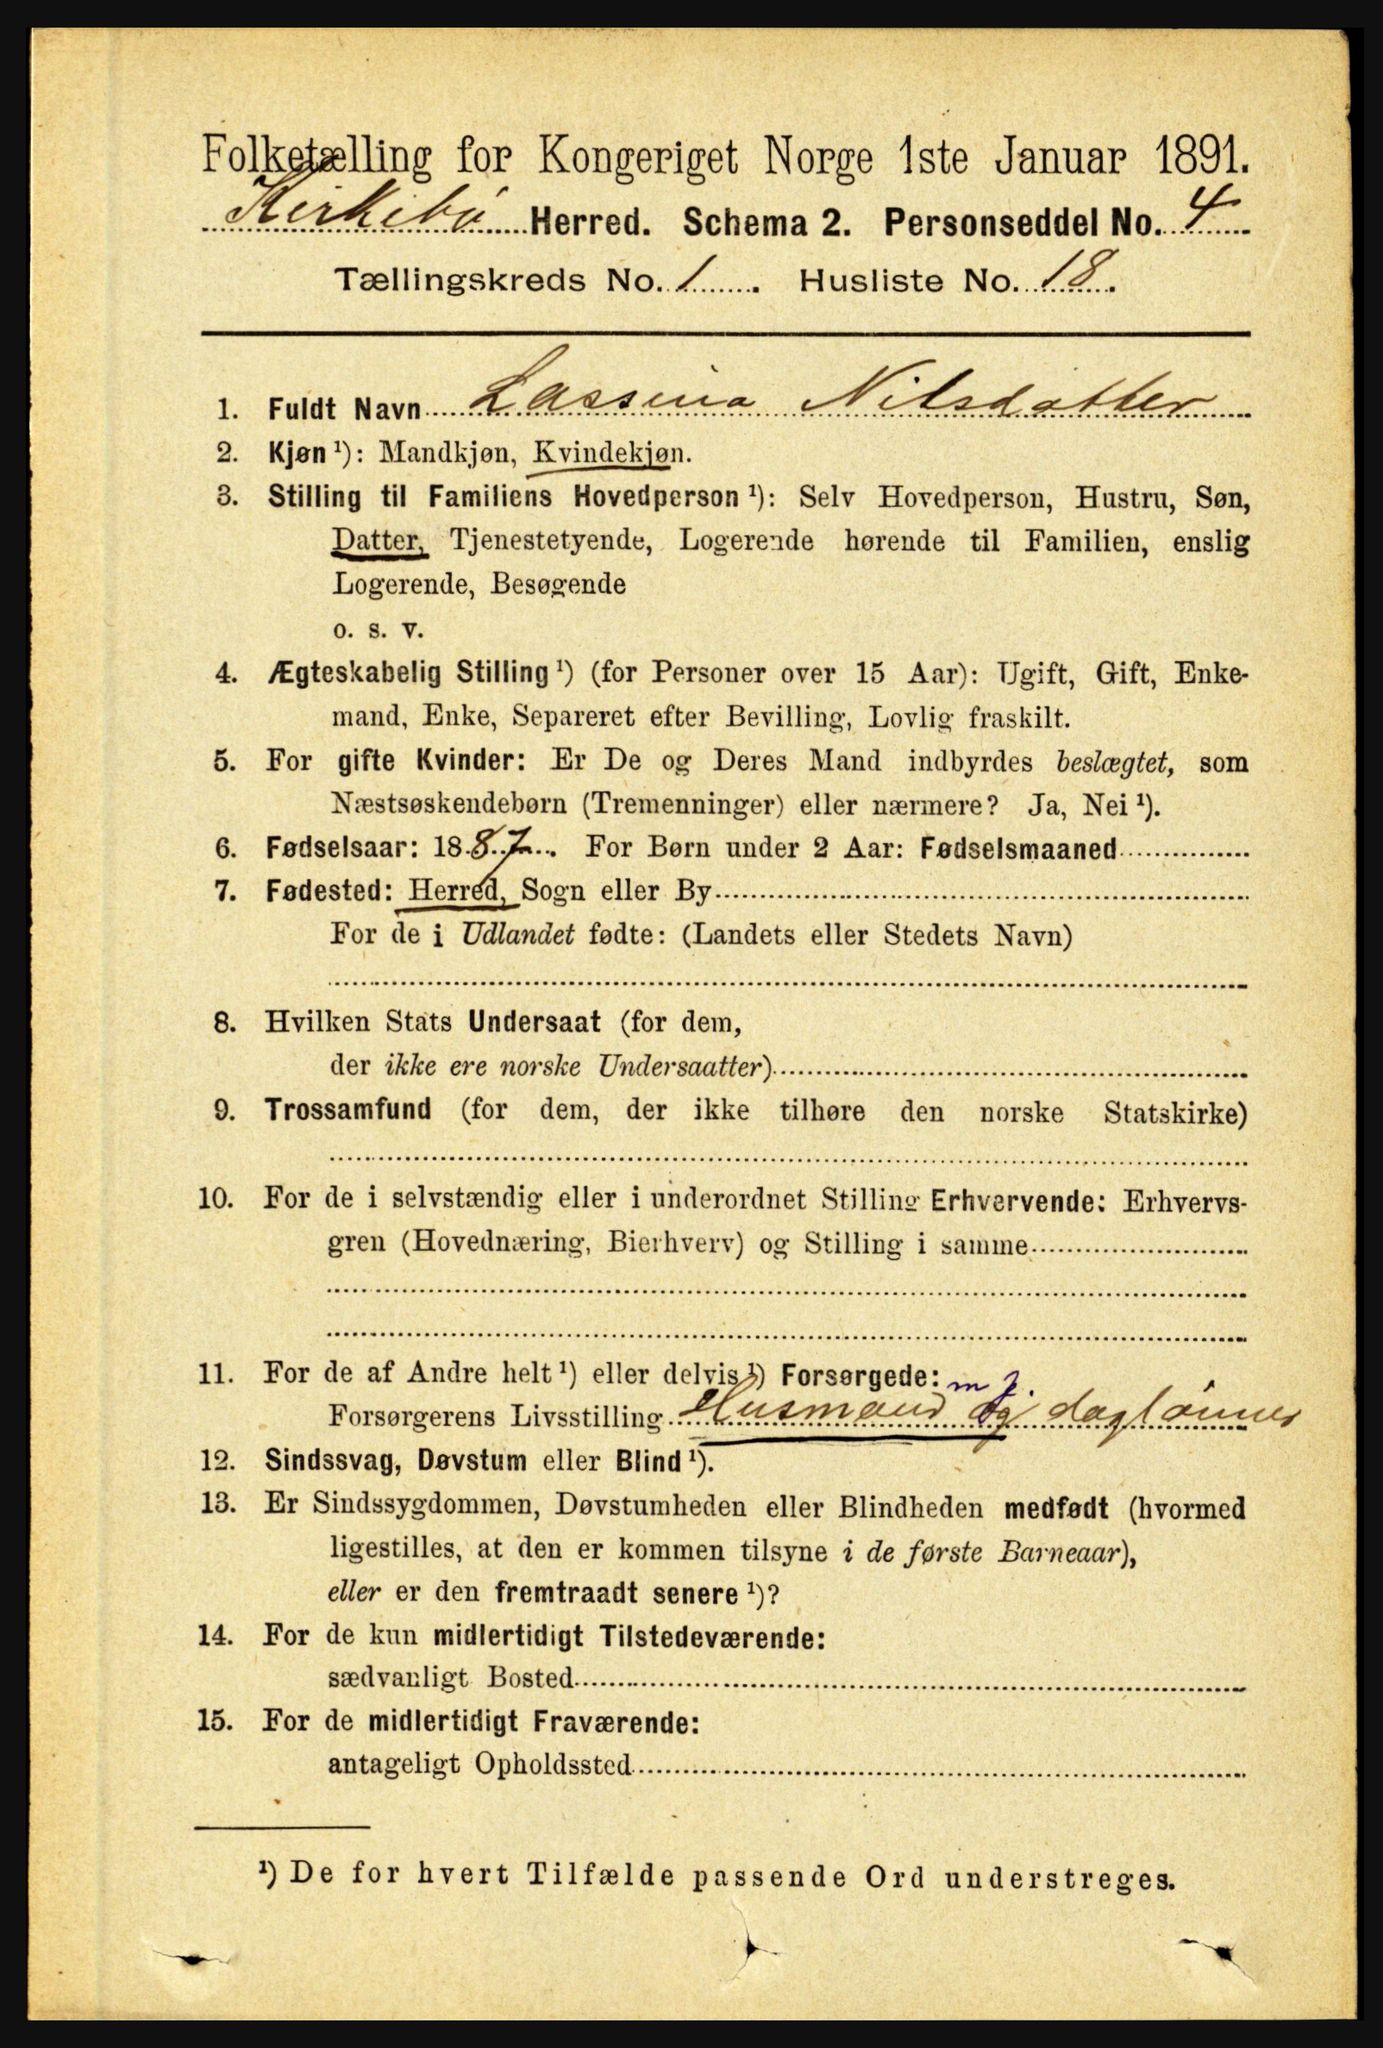 Folketælling for Kongeriget Norge 1ste Januar 1891.
Kirkebø Herred. Schema 2. Personseddel No. 4
Tællingskreds No. 1. Husliste No. 18.
1. Fuldt Navn Lassina Nilsdatter
2. Kjøn ¹): Mandkjøn, Kvindekjøn.
3. Stilling til Familiens Hovedperson ¹): Selv Hovedperson, Hustru, Søn,
Datter, Tjenestetyende, Logerende hørende til Familien, enslig
Logerende, Besøgende
o. s. v.
4. Ægteskabelig Stilling ¹) (for Personer over 15 Aar): Ugift, Gift, Enke-
mand, Enke, Separeret efter Bevilling, Lovlig fraskilt.
5. For gifte Kvinder: Er De og Deres Mand indbyrdes beslægtet, som
Næstsøskendebørn (Tremenninger) eller nærmere? Ja, Nei ¹).
6. Fødselsaar: 1887. For Børn under 2 Aar: Fødselsmaaned
7. Fødested: Herred, Sogn eller By
For de i Udlandet fødte: (Landets eller Stedets Navn)
8. Hvilken Stats Undersaat (for dem,
der ikke ere norske Undersaatter)
9. Trossamfund (for dem, der ikke tilhøre den norske Statskirke)
10. For de i selvstændig eller i underordnet Stilling Erhvervende: Erhvervs-
gren (Hovednæring, Bierhverv) og Stilling i samme
11. For de af Andre helt ¹) eller delvis ¹) Forsørgede: m J.
Forsørgerens Livsstilling Husmand og daglønner
12. Sindssvag, Døvstum eller Blind ¹).
13. Er Sindssygdommen, Døvstumheden eller Blindheden medfødt (hvormed
ligestilles, at den er kommen tilsyne i de første Barneaar),
eller er den fremtraadt senere ¹)?
14. For de kun midlertidigt Tilstedeværende:
sædvanligt Bosted
15. For de midlertidigt Fraværende:
antageligt Opholdssted
¹) De for hvert Tilfælde passende Ord understreges.